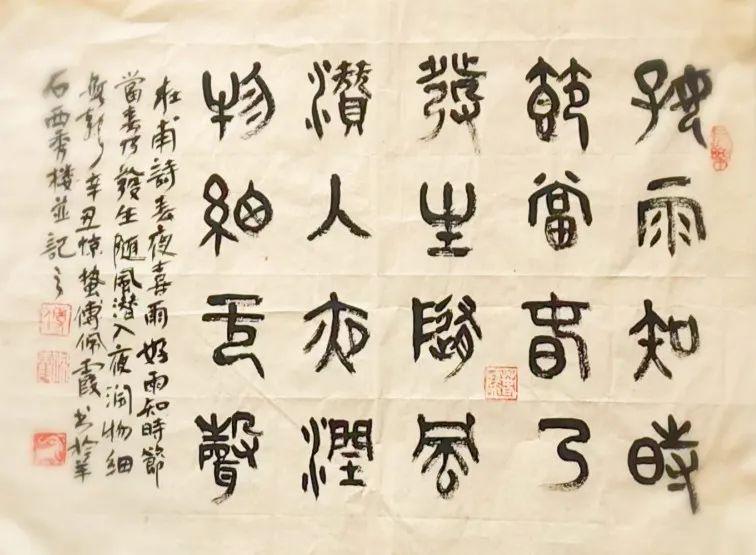 好雨知時
節當春乃
發生隨風
潛入夜潤
物細无聲
杜甫詩春夜喜雨好雨知時節
當春乃發生隨風潛入夜潤物細
無聲辛丑惊蟄傅佩霞书於羊
石西秀樓並記之